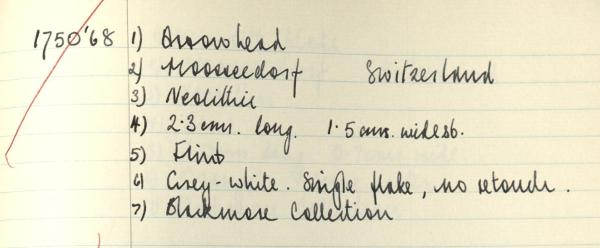 1750'68 1) Arrowhead
2) Moosseedorf Switzerland
3) Neolithic
4) 2.3 cms. long. 1.5 cms. widest.
5) Flint
6) Grey-white. Single flake, no retouch.
7) Blackmore Collection